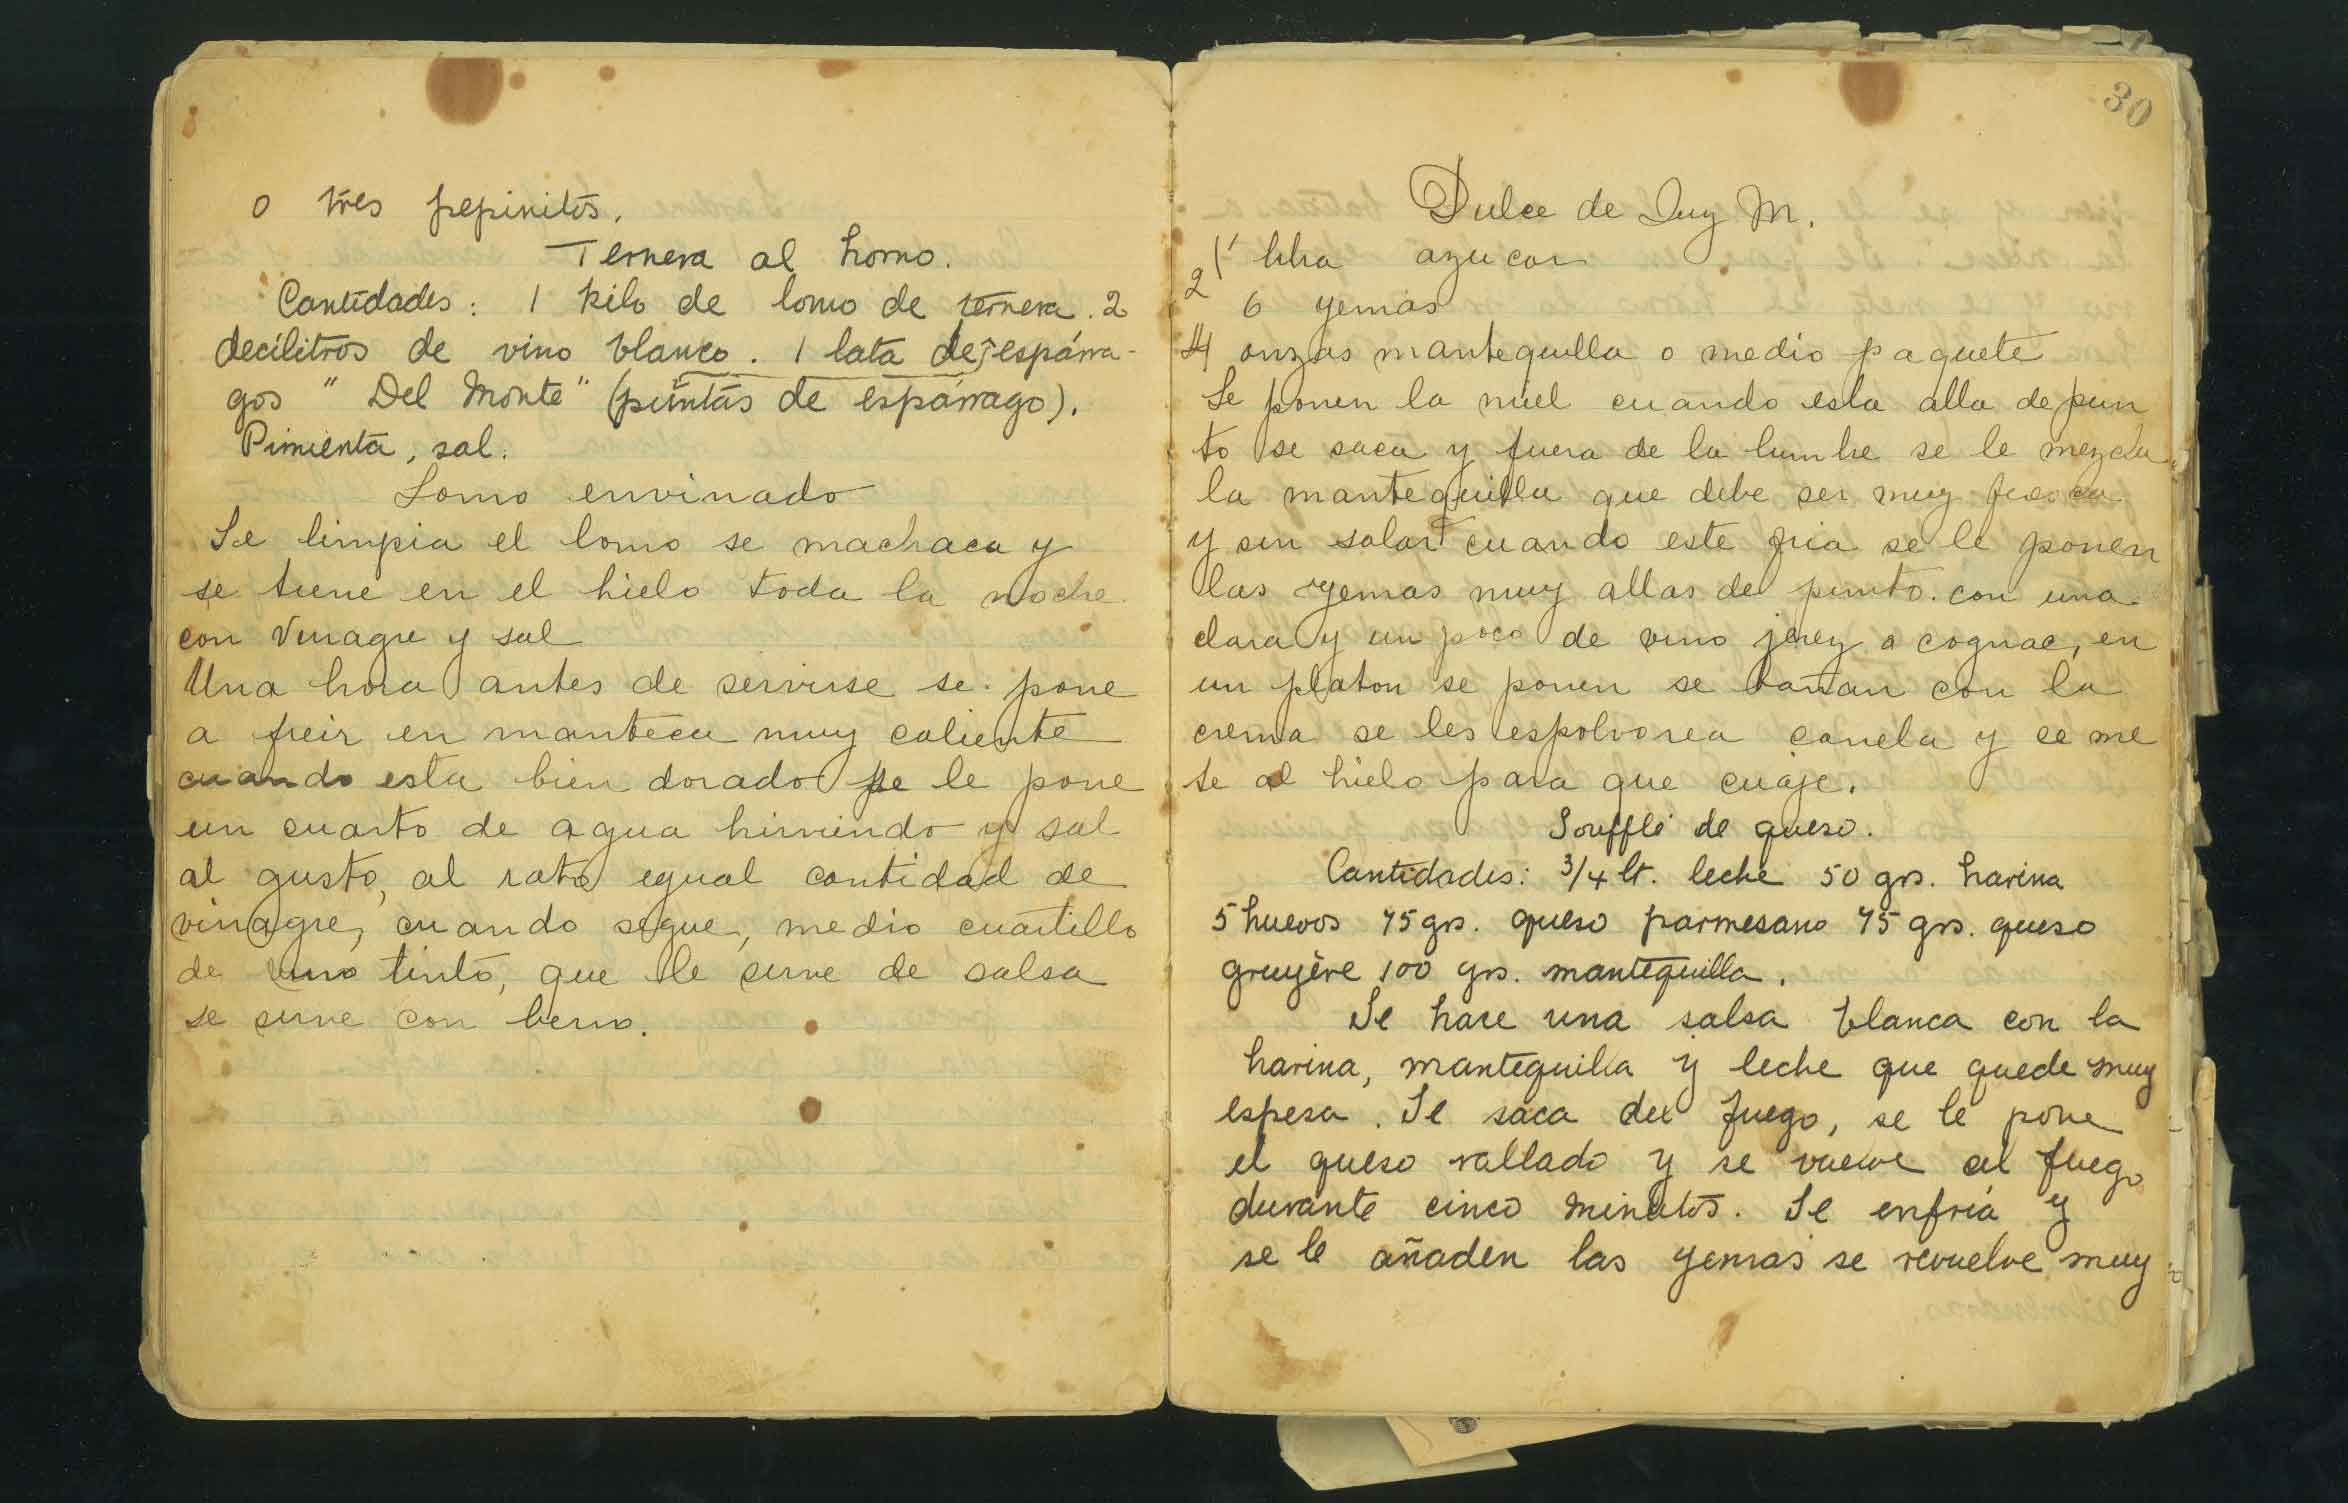 o tres pepinitos.
Ternera al horno.
Cantidades: 1 kilo de lomo de ternera. 2
decílitros de vino blanco. 1 lata de espárra-
gos "Del Monte" (puntas de espárrago).
Pimienta, sal.
Lomo envinado
Se limpia el lomo se machaca y
se tiene en el hielo toda la noche
con Vinagre y sal
Una hora antes de servirse se pone
a freir en manteca muy caliente
cuando esta bien dorado se le pone
un cuarto de agua hirviendo y sal
al gusto, al rato egual cantidad de
vinagre, cuando seque, medio cuartillo
de vino tinto, que le sirve de salsa
se sirve con berro.
30
Dulce de Luz M.
1 libra azucar
2
6 yemas
4 onzas mantequilla o medio paquete
Se ponen la miel cuando esta alla de pun
to se saca y fuera de la lumbre se le mezcla
la mantequilla que debe ser muy fresca
y sin salar cuando este fria se le ponen
las yemas muy allas de punto. con una
clara y un poco de vino jerez o cognac, en
un platon se ponen se bañan con la
crema se les espolvorea canela y se me
te al hielo para que cuaje.
Soufflé de queso.
Cantidades: 3/4 lt. leche 50 grs. harina
5 huevos 75 grs. queso parmesano 75 grs. queso
gruyère 100 grs. mantequilla.
Se hace una salsa blanca con la
harina, mantequilla y leche que quede muy
espesa. Se saca del fuego, se le pone
el queso rallado y se vuelve al fuego
durante cinco minutos. Se enfría y
se le añaden las yemas se revuelve muy